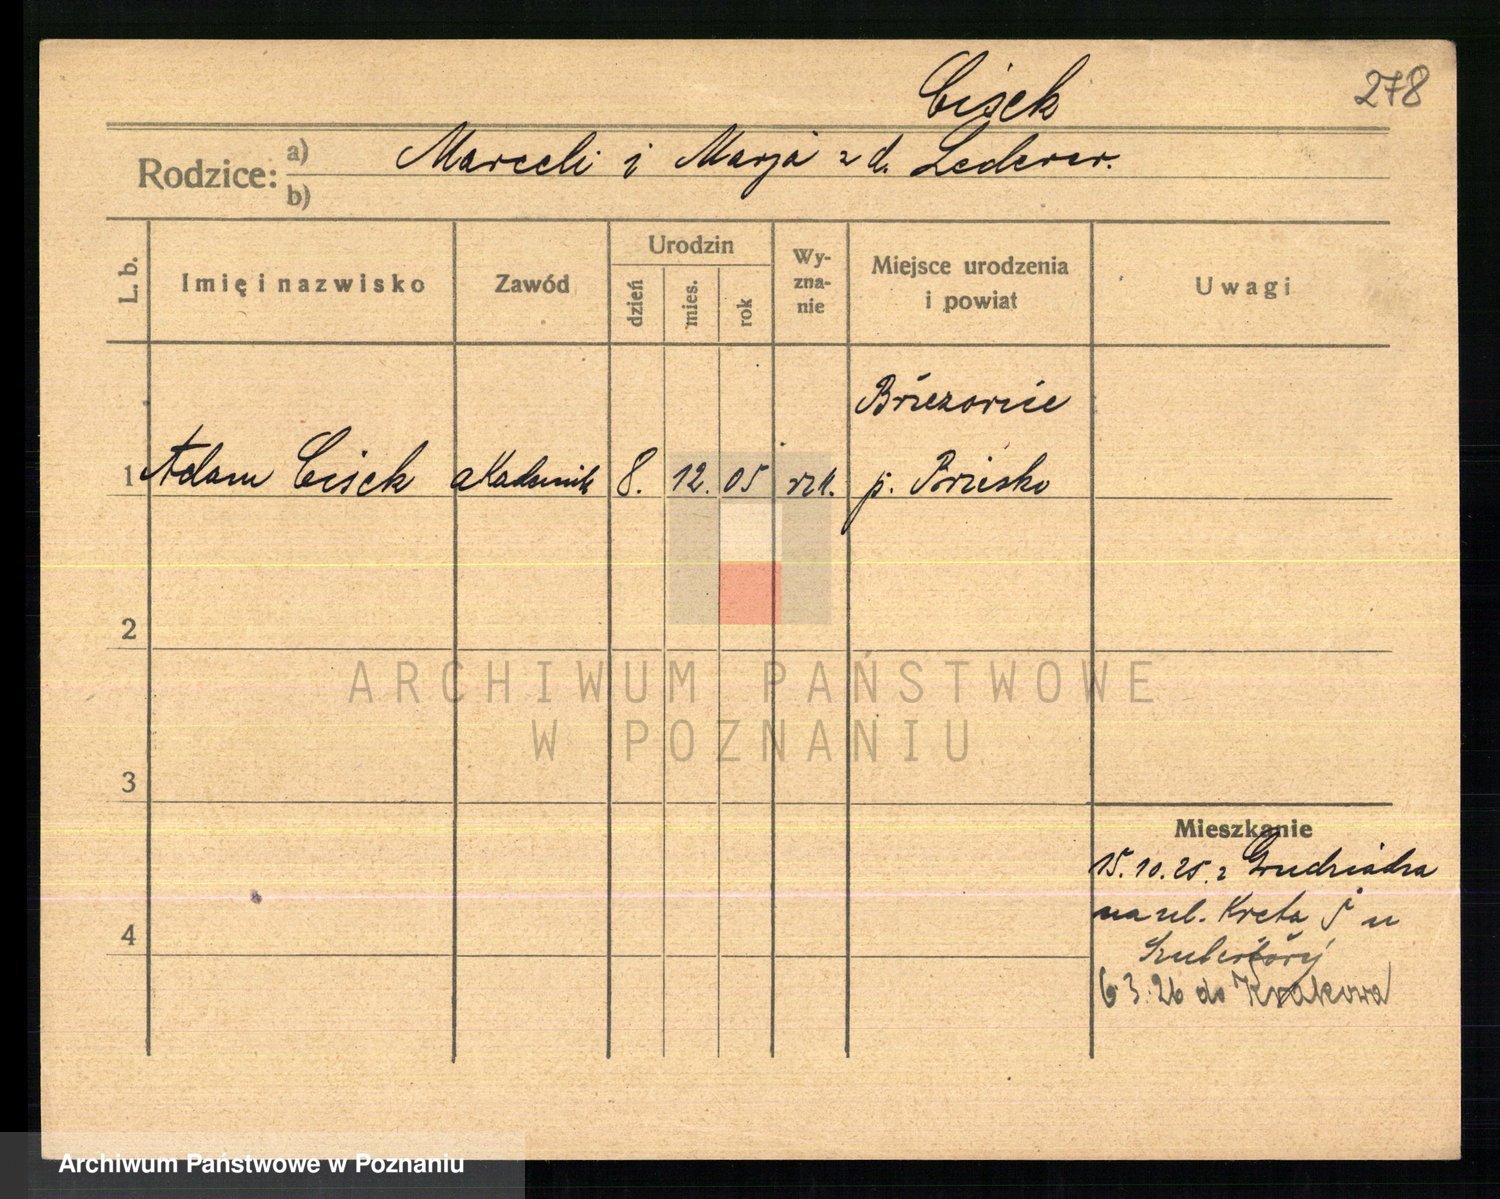 Cisek
278
Rodzice: a) b)
Marceli i Marja z d. Lederer.
L. b.
Imię i nazwisko
Zawód
Urodzin
dzień
mies.
rok
Wy-
zna-
nie
Miejsce urodzenia
i powiat
Uwagi
Brzezowiec
1 Adam Cisek akademik 8. 12. 05 rzk. p. Brzesko
2
3
4
ARCHIWUM PAŃSTWOWE
W POZNANIU
Mieszkanie
15.10.25. z Grudziądza
na ul. Kręta 5 u
6 3.26 do Krakowa
Archiwum Państwowe w Poznaniu